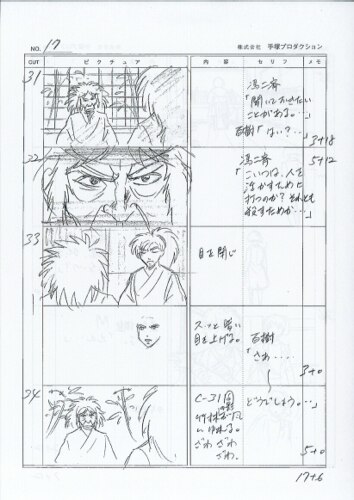 NO. 17
株式会社 手塚プロダクション
CUT
ピクチュア
内容
セリフ
メモ
31
馮二斎
「聞いておきたい
ことがある。…」
百樹「はい?…」
3+18
32
馮二斎
「こいつは、人を
活かすために
打つのか? それとも
殺すためか…」
5+12
33
目を閉じ
スッと
目を上げる。
百樹
「さあ…
3+0
34
C-31
竹林
ざわ ざわ
ざわ。
どうでしょう。…」
5+0
17+6